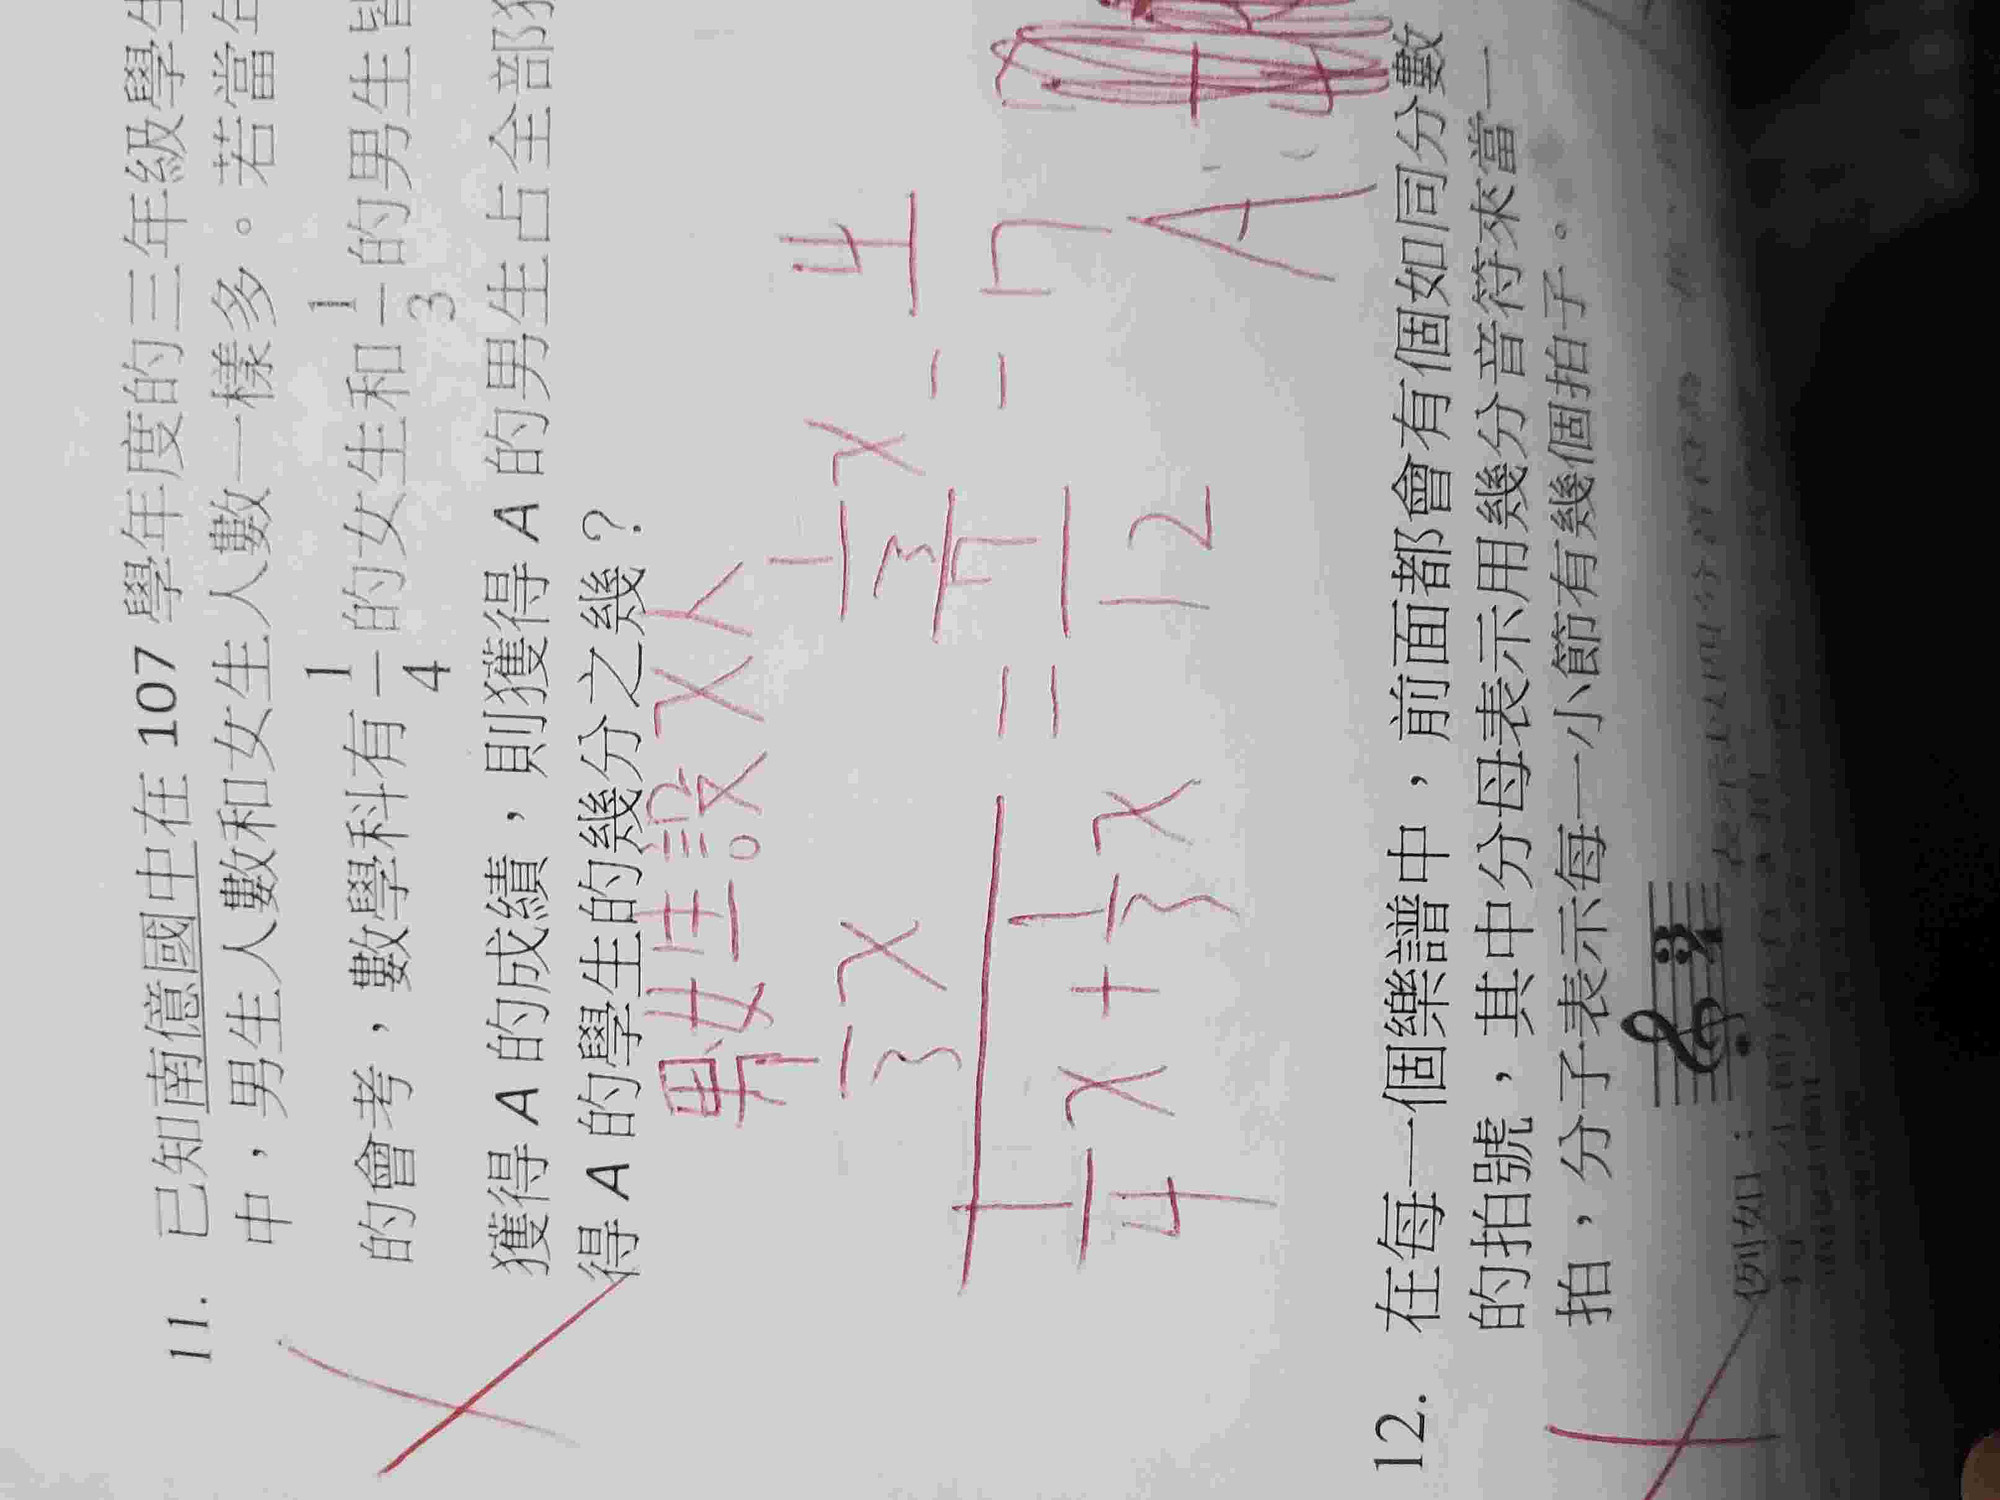 11. 已知南億國中在 107 學年度的三年級學生
中，男生人數和女生人數一樣多。若當年
的會考，數學科有 1/4 的女生和 1/3 的男生皆
獲得 A 的成績，則獲得 A 的男生占全部獲
得 A 的學生的幾分之幾？
男女生設x人
1/3 x / (1/4 x + 1/3 x) = 1/3 x / 7/12 = 4/7
A:
12. 在每一個樂譜中，前面都會有個如同分數
的拍號，其中分母表示用幾分音符來當一
拍，分子表示每一小節有幾個拍子。
例如：